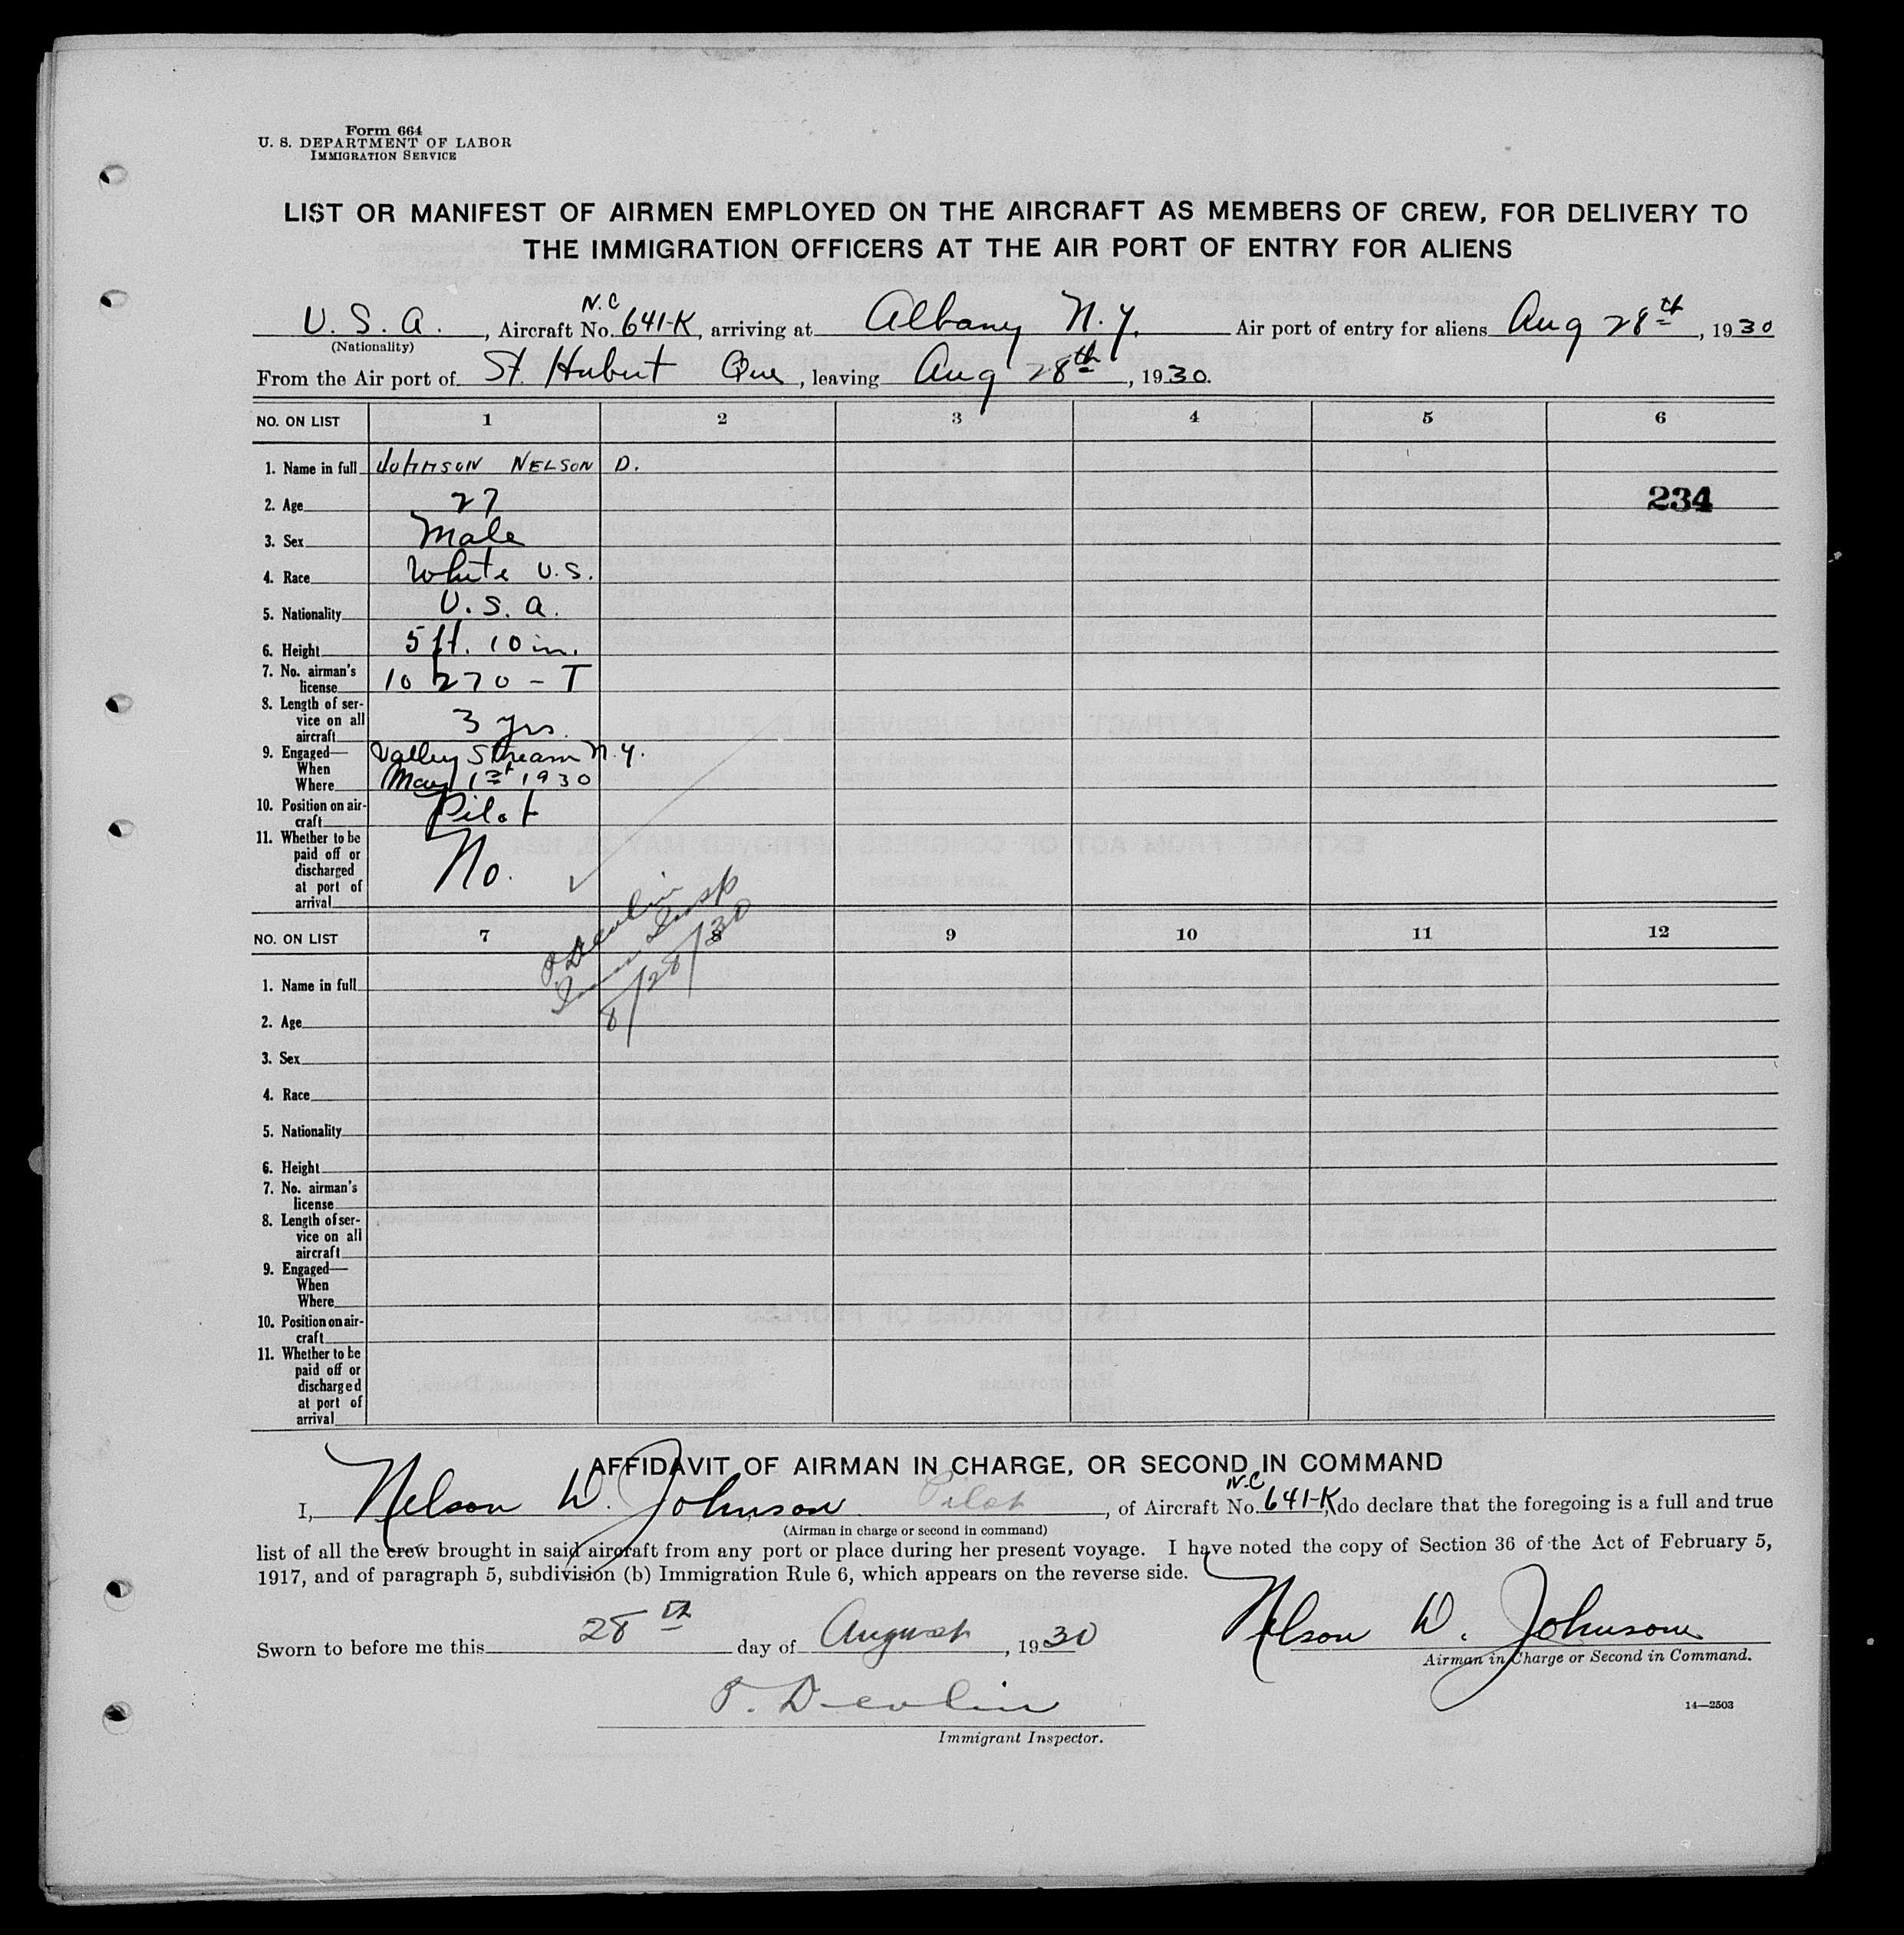 Form 664
U. S. DEPARTMENT OF LABOR
IMMIGRATION SERVICE
LIST OR MANIFEST OF AIRMEN EMPLOYED ON THE AIRCRAFT AS MEMBERS OF CREW, FOR DELIVERY TO
THE IMMIGRATION OFFICERS AT THE AIR PORT OF ENTRY FOR ALIENS
U. S. A., Aircraft No. N.C 641-K, arriving at Albany N.Y. Air port of entry for aliens Aug 28th, 1930
(Nationality)
From the Air port of St. Hubert Que, leaving Aug 28th, 1930.
NO. ON LIST 1 2 3 4 5 6
1. Name in full JOHNSON NELSON D.
2. Age 27 234
3. Sex Male
4. Race White U.S.
5. Nationality U.S.A.
6. Height 5 ft. 10 in.
7. No. airman's
license 10270-T
8. Length of ser-
vice on all
aircraft 3 yrs.
9. Engaged— Valley Stream N.Y.
When
Where May 1st 1930
10. Position on air-
craft Pilot
11. Whether to be
paid off or
discharged No.
at port of
arrival
P. Devlin
Imm Insp
8/28/30
NO. ON LIST 7 8 9 10 11 12
1. Name in full
2. Age
3. Sex
4. Race
5. Nationality
6. Height
7. No. airman's
license
8. Length of ser-
vice on all
aircraft
9. Engaged—
When
Where
10. Position on air-
craft
11. Whether to be
paid off or
discharged
at port of
arrival
AFFIDAVIT OF AIRMAN IN CHARGE, OR SECOND IN COMMAND
I, Nelson D. Johnson Pilot, of Aircraft No. N.C 641-K, do declare that the foregoing is a full and true
(Airman in charge or second in command)
list of all the crew brought in said aircraft from any port or place during her present voyage. I have noted the copy of Section 36 of the Act of February 5,
1917, and of paragraph 5, subdivision (b) Immigration Rule 6, which appears on the reverse side.
Sworn to before me this 28th day of August, 1930 Nelson D. Johnson
Airman in Charge or Second in Command.
P. Devlin
14—2503
Immigrant Inspector.